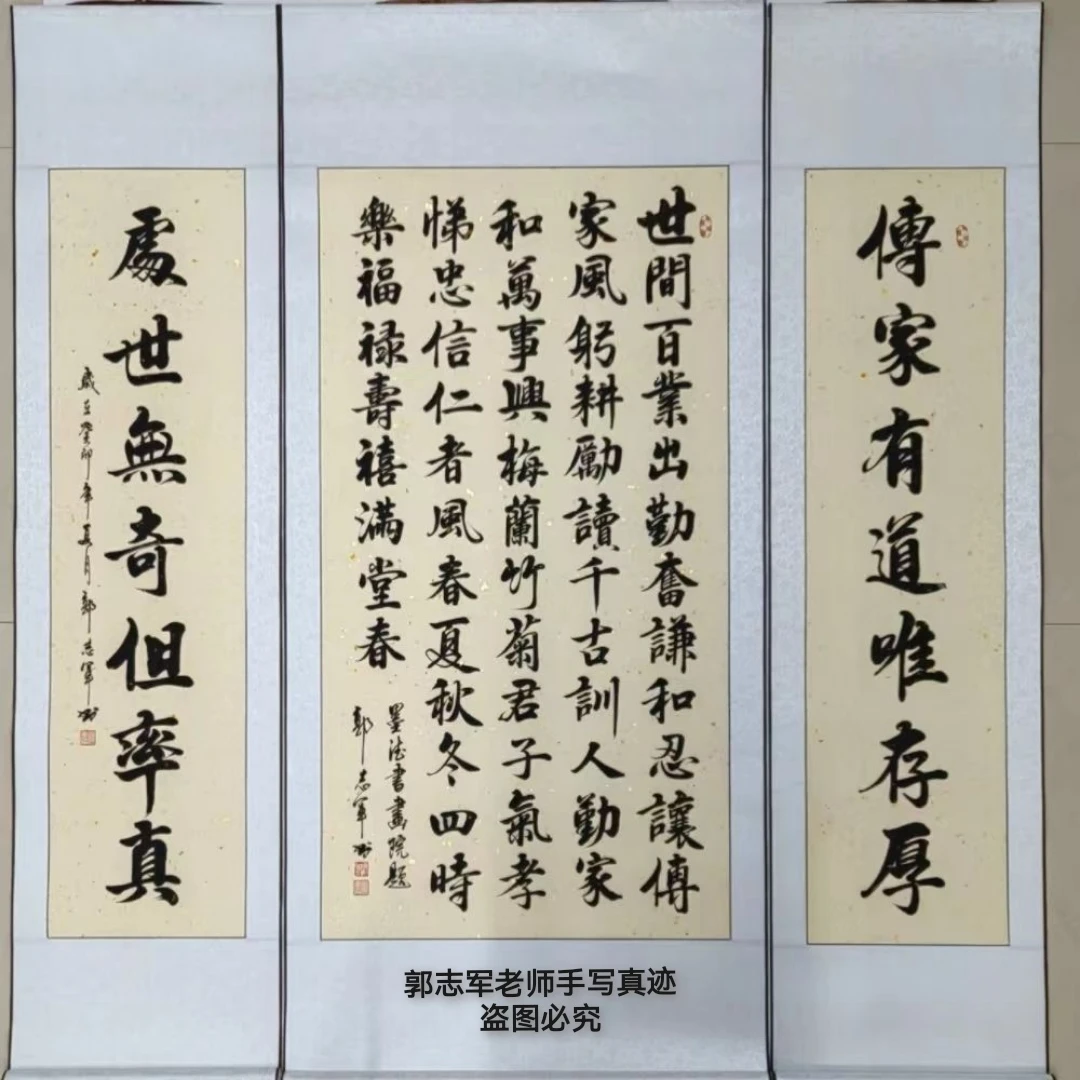 傳家有道唯存厚
世間百業出勤奮謙和忍讓傳
家風躬耕勵讀千古訓人勤家
和萬事興梅蘭竹菊君子氣孝
悌忠信仁者風春夏秋冬四時
樂福禄壽禧满堂春
墨法書畫院題
郭志軍
處世無奇但率真
歲在癸卯年夏月郭志軍書
郭志军老师手写真迹
盗图必究